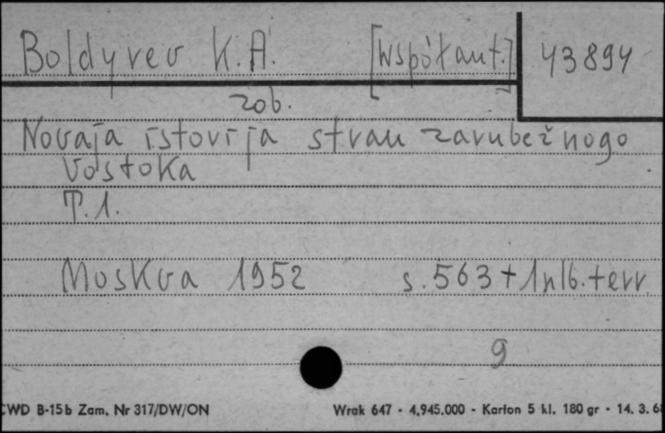 Boldyrev K.A. [współaut.] 43894
zob.
Novaja istorija stran zarubežnogo
Vostoka
T.1.
Moskva 1952 s. 563 + 1 nlb. + err
9
CWD B-15b Zam. Nr 317/DW/ON Wrak 647 - 4.945.000 - Karton 5 kl. 180 gr - 14. 3. 6